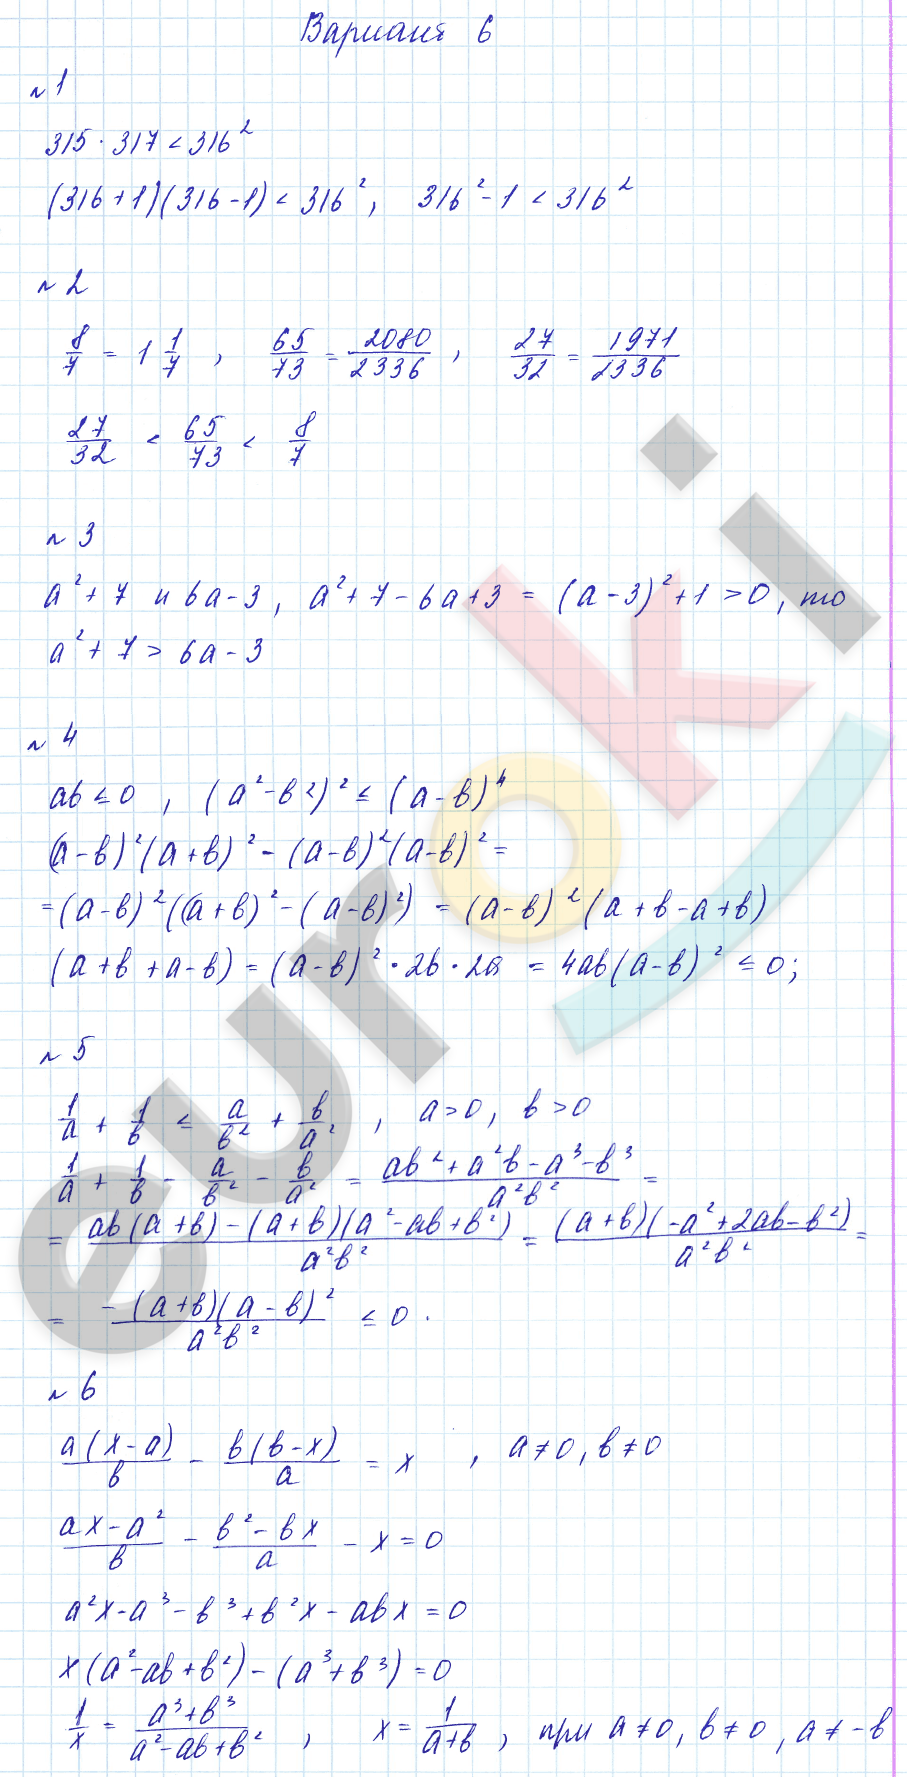 Вариант 6
№1
315 · 317 < 316²
(316+1)(316-1) < 316², 316² - 1 < 316²
№2
8/7 = 1 1/7, 65/73 = 2080/2336, 27/32 = 1971/2336
27/32 < 65/73 < 8/7
№3
a² + 7 и 6a - 3, a² + 7 - 6a + 3 = (a - 3)² + 1 > 0, то
a² + 7 > 6a - 3
№4
ab ≤ 0, (a² - b²)² ≤ (a - b)⁴
(a - b)²(a + b)² - (a - b)²(a - b)² =
= (a - b)²((a + b)² - (a - b)²) = (a - b)²(a + b - a + b)
(a + b + a - b) = (a - b)² · 2b · 2a = 4ab(a - b)² ≤ 0;
№5
1/a + 1/b ≤ a/b² + b/a², a > 0, b > 0
1/a + 1/b - a/b² - b/a² = (ab² + a²b - a³ - b³)/(a²b²) =
= (ab(a + b) - (a + b)(a² - ab + b²))/(a²b²) = ((a + b)(-a² + 2ab - b²))/(a²b²) =
= (-(a + b)(a - b)²)/(a²b²) ≤ 0.
№6
a(x - a)/b - b(b - x)/a = x, a ≠ 0, b ≠ 0
(ax - a²)/b - (b² - bx)/a - x = 0
a²x - a³ - b³ + b²x - abx = 0
x(a² - ab + b²) - (a³ + b³) = 0
1/x = (a³ + b³)/(a² - ab + b²), x = 1/(a + b), при a ≠ 0, b ≠ 0, a ≠ -b
euroki